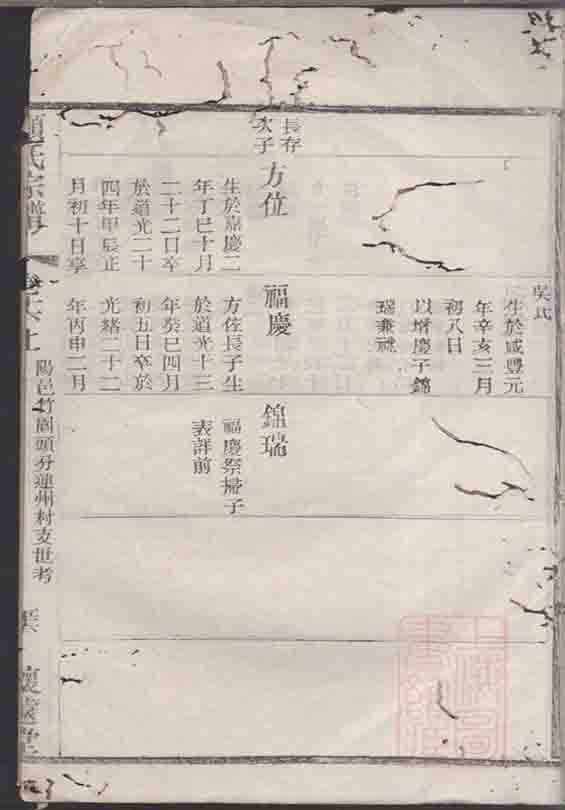 吳氏
生於咸豐元
年辛亥三月
初八日
以增慶子錦
瑞兼祧
長存
次子
方位
生於嘉慶二
年丁巳十月
二十二日卒
於道光二十
四年甲辰正
月初十日享
福慶
方佐長子生
於道光十三
年癸巳四月
初五日卒於
光緒二十二
年丙申二月
錦瑞
福慶祭掃子
表詳前
氏宗譜
陽邑竹園頭分蓮州村支世考